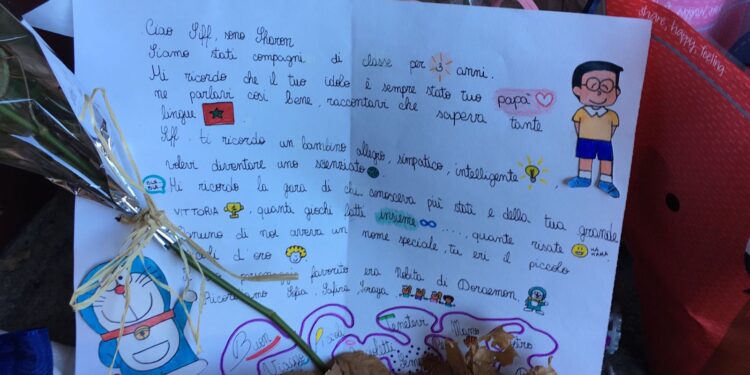 Ciao Siff, sono Sharon
Siamo stati compagni di classe per 3 anni.
Mi ricordo che il tuo idolo è sempre stato tuo papà
ne parlavi così bene, raccontavi che sapeva tante
lingue
Siff. ti ricordo un bambino allegro, simpatico, intelligente,
volevi diventare uno scienziato.
Mi ricordo la gara di chi conosceva più stati e della tua grande
VITTORIA, quanti giochi fatti insieme ...., quante risate HA HAHA.
Ognuno di noi aveva un nome speciale, tu eri il piccolo
d'oro
personaggio favorito era Nobita di Doraemon
Ricordiamo Sofia, Safira, Soraya,
Buon Tenetevi Mano
Viaggio
share, happy, feeling